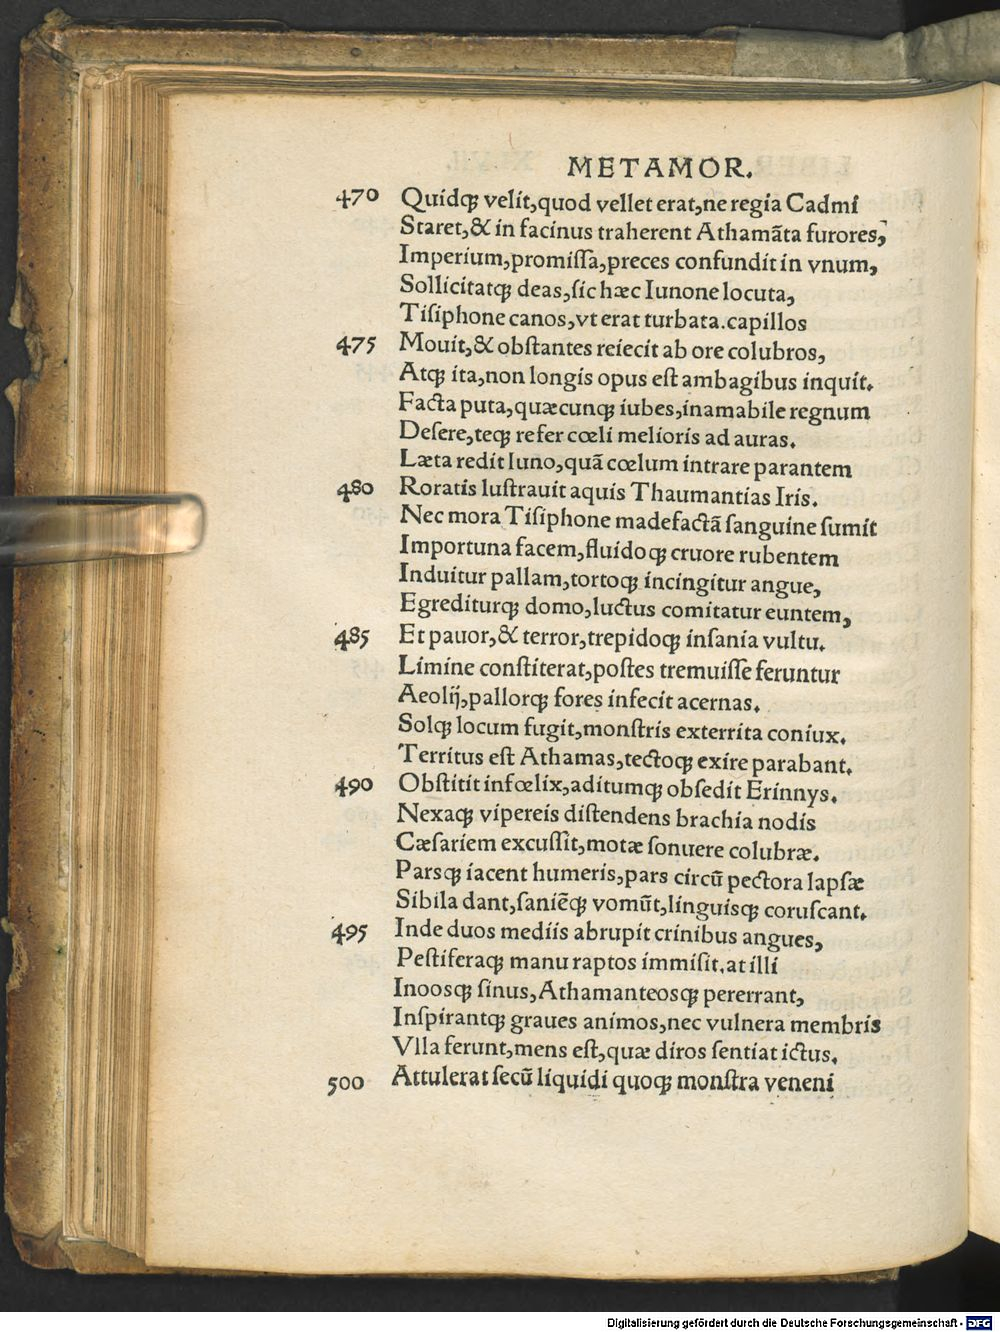 METAMOR.
470 Quidqꝫ velit,quod vellet erat,ne regia Cadmi
Staret,& in facinus traherent Athamãta furores,
Imperium,promiſſa,preces confundit in vnum,
Sollicitatqꝫ deas,ſic hæc Iunone locuta,
Tiſiphone canos,vt erat turbata.capillos
475 Mouit,& obſtantes reiecit ab ore colubros,
Atqꝫ ita,non longis opus eſt ambagibus inquit.
Facta puta,quæcunqꝫ iubes,inamabile regnum
Deſere,teqꝫ refer cœli melioris ad auras.
Læta redit Iuno,quã cœlum intrare parantem
480 Roratis luſtrauit aquis Thaumantias Iris.
Nec mora Tiſiphone madefactã ſanguine ſumit
Importuna facem,fluidoqꝫ cruore rubentem
Induitur pallam,tortoqꝫ incingitur angue,
Egrediturqꝫ domo,luctus comitatur euntem,
485 Et pauor,& terror,trepidoqꝫ inſania vultu.
Limine conſtiterat,poſtes tremuiſſe feruntur
Aeolij,pallorqꝫ fores infecit acernas.
Solqꝫ locum fugit,monſtris exterrita coniux.
Territus eſt Athamas,tectoqꝫ exire parabant.
490 Obſtitit infœlix,aditumqꝫ obſedit Erinnys.
Nexaqꝫ vipereis diſtendens brachia nodis
Cæſariem excuſſit,motæ ſonuere colubræ.
Parsqꝫ iacent humeris,pars circũ pectora lapſæ
Sibila dant,ſaniẽqꝫ vomũt,linguisqꝫ coruſcant.
495 Inde duos mediis abrupit crinibus angues,
Peſtiferaqꝫ manu raptos immiſit.at illi
Inoosqꝫ ſinus,Athamanteosqꝫ pererrant,
Inſpirantqꝫ graues animos,nec vulnera membris
Vlla ferunt,mens eſt,quæ diros ſentiat ictus.
500 Attulerat ſecũ liquidi quoqꝫ monſtra veneni
Digitalisierung gefördert durch die Deutsche Forschungsgemeinschaft - DFG